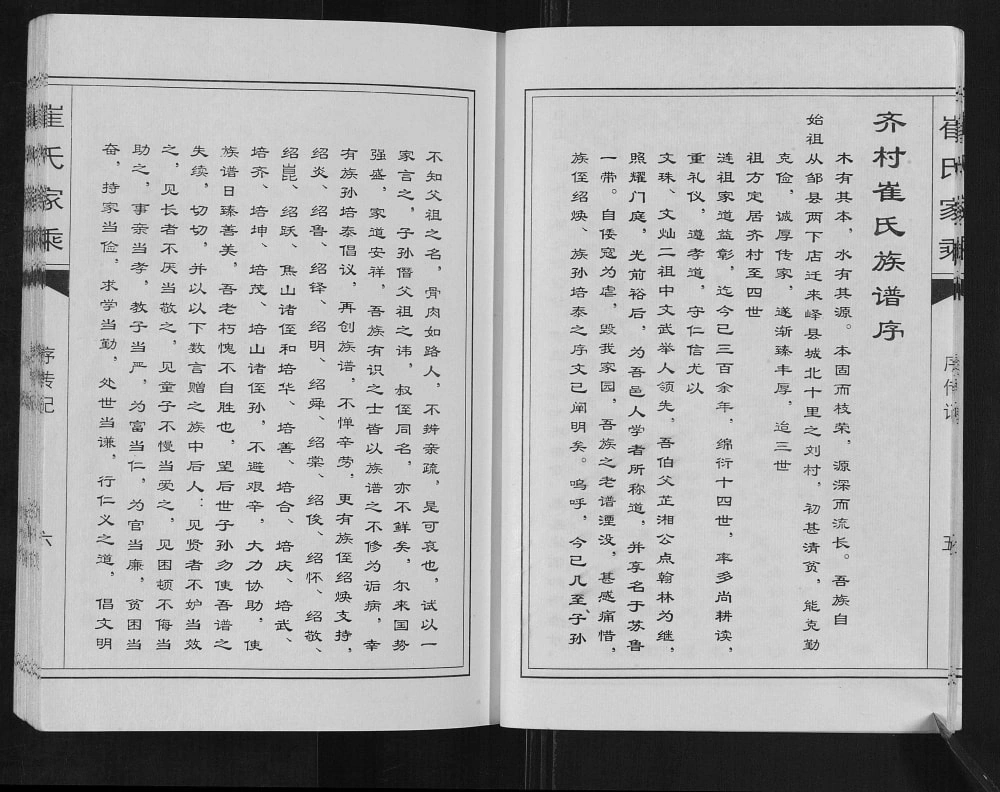 崔氏家乘
序传记
五
齐村崔氏族谱序
木有其本，水有其源。本固而枝荣，源深而流长。吾族自
始祖从邹县两下店迁来峄县城北十里之刘村，初甚清贫，能克勤
克俭，诚厚传家，遂渐臻丰厚，迨三世
祖方定居齐村至四世
涟祖家道益彰，迄今已三百余年，绵衍十四世，率多尚耕读，
重礼仪，遵孝道，守仁信尤以
文珠、文灿二祖中文武举人领先，吾伯父芷湘公点翰林为继，
照耀门庭，光前裕后，为吾邑人学者所称道，并享名于苏鲁
一带。自倭寇为虐，毁我家园，吾族之老谱湮没，甚感痛惜，
族侄绍焕、族孙培泰之序文已阐明矣。呜呼，今已几至、子孙
不知父祖之名，骨肉如路人，不辨亲疏，是可哀也，试以一
家言之，子孙僭父祖之讳，叔侄同名，亦不鲜矣，尔来国势
强盛，家道安祥，吾族有识之士皆以族谱之不修为诟病，幸
有族孙培泰倡议，再创族谱，不惮辛劳，更有族侄绍焕支持，
绍炎、绍鲁、绍铎、绍明、绍舜、绍棠、绍俊、绍怀、绍敬、
绍崑、绍跃、焦山诸侄和培华、培善、培合、培庆、培武、
培齐、培坤、培茂、培山诸孙，不避艰辛，大力协助，使
族谱日臻善美，吾老朽愧不自胜也，望后世子孙勿使吾谱之
失续，切切，并以以下数言赠之族中后人：见贤者不妒当效
之，见长者不厌当敬之，见童子不慢当爱之，见困顿不侮当
助之，事亲当孝，教子当严，为富当仁，为官当廉，贫困当
奋，持家当俭，求学当勤，处世当谦，行仁义之道，倡文明
崔氏家乘
序传记
六